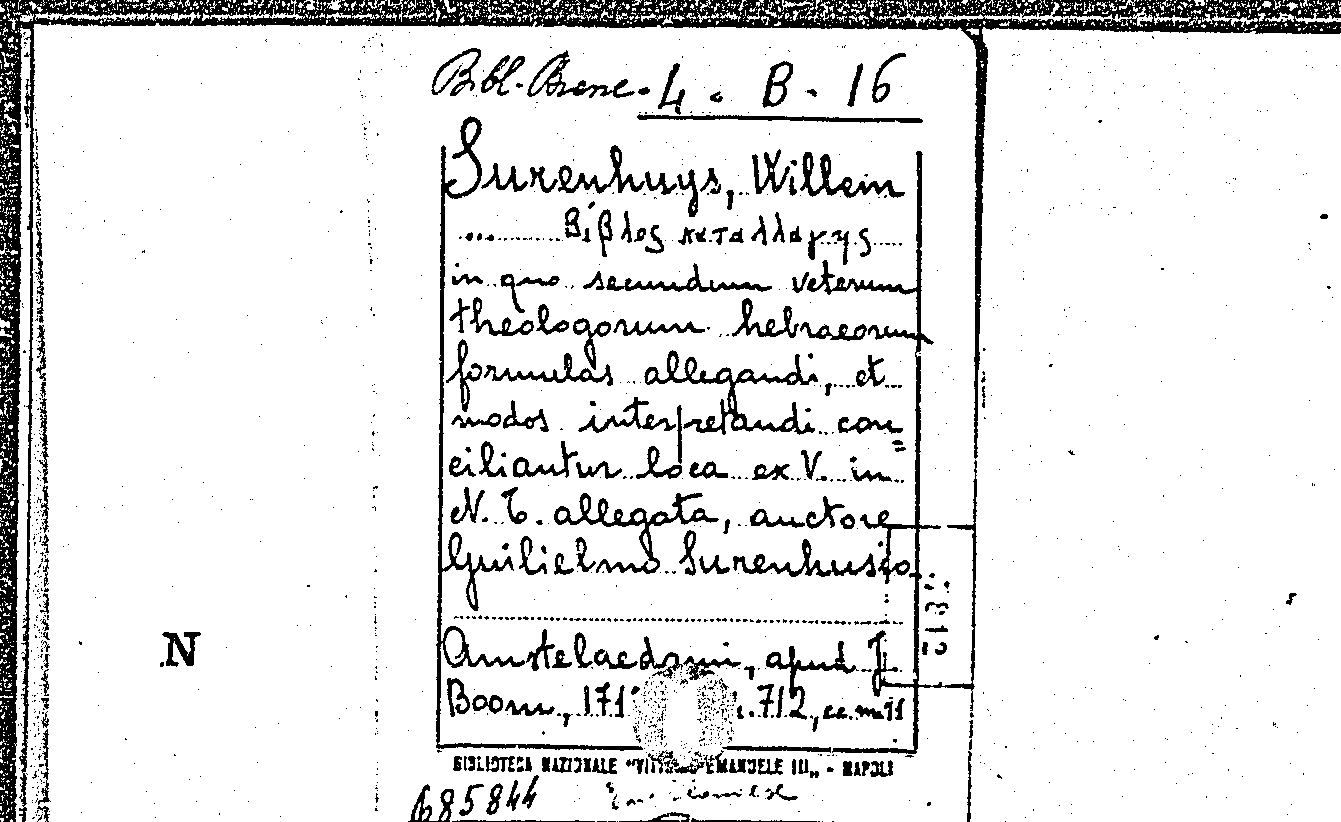 Bibl. Branc. 4. B. 16
Surenhuys, Willem
.... Βίβλος καταλλαγης
in quo secundum veterum
theologorum hebraeorum
formulas allegandi, et
modos interpretandi con=
ciliantur loca ex V. in
N. T. allegata, auctore
Guilielmo Surenhusio.
Amstelaedami, apud J.
Boom, 171 .712,
N
BIBLIOTECA NAZIONALE "VITTORIO EMANUELE III„ - NAPOLI
685844